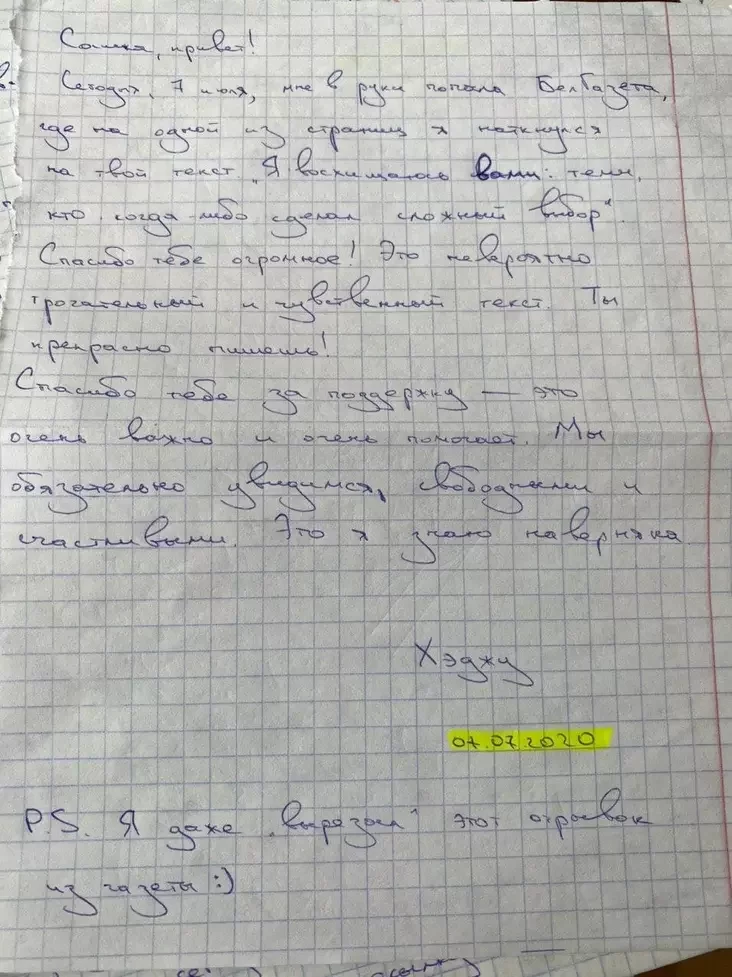 Сашка, привет!
Сегодня, 7 июля, мне в руки попала БелГазета,
где на одной из страниц я наткнулся
на твой текст „Я восхищаюсь вами: теми,
кто когда-либо сделал сложный выбор“.
Спасибо тебе огромное! Это невероятно
трогательный и чувственный текст. Ты
прекрасно пишешь!
Спасибо тебе за поддержку — это
очень важно и очень помогает. Мы
обязательно увидимся, свободными и
счастливыми. Это я знаю наверняка.
Хэджу
07.07.2020
P.S. Я даже „вырезал“ этот отрывок
из газеты :)